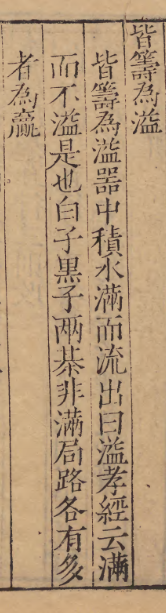 皆籌為溢
皆籌為溢器中積水滿而流出曰溢孝經云滿
而不溢是也白子黒子兩棊非滿局路各有多
者為贏